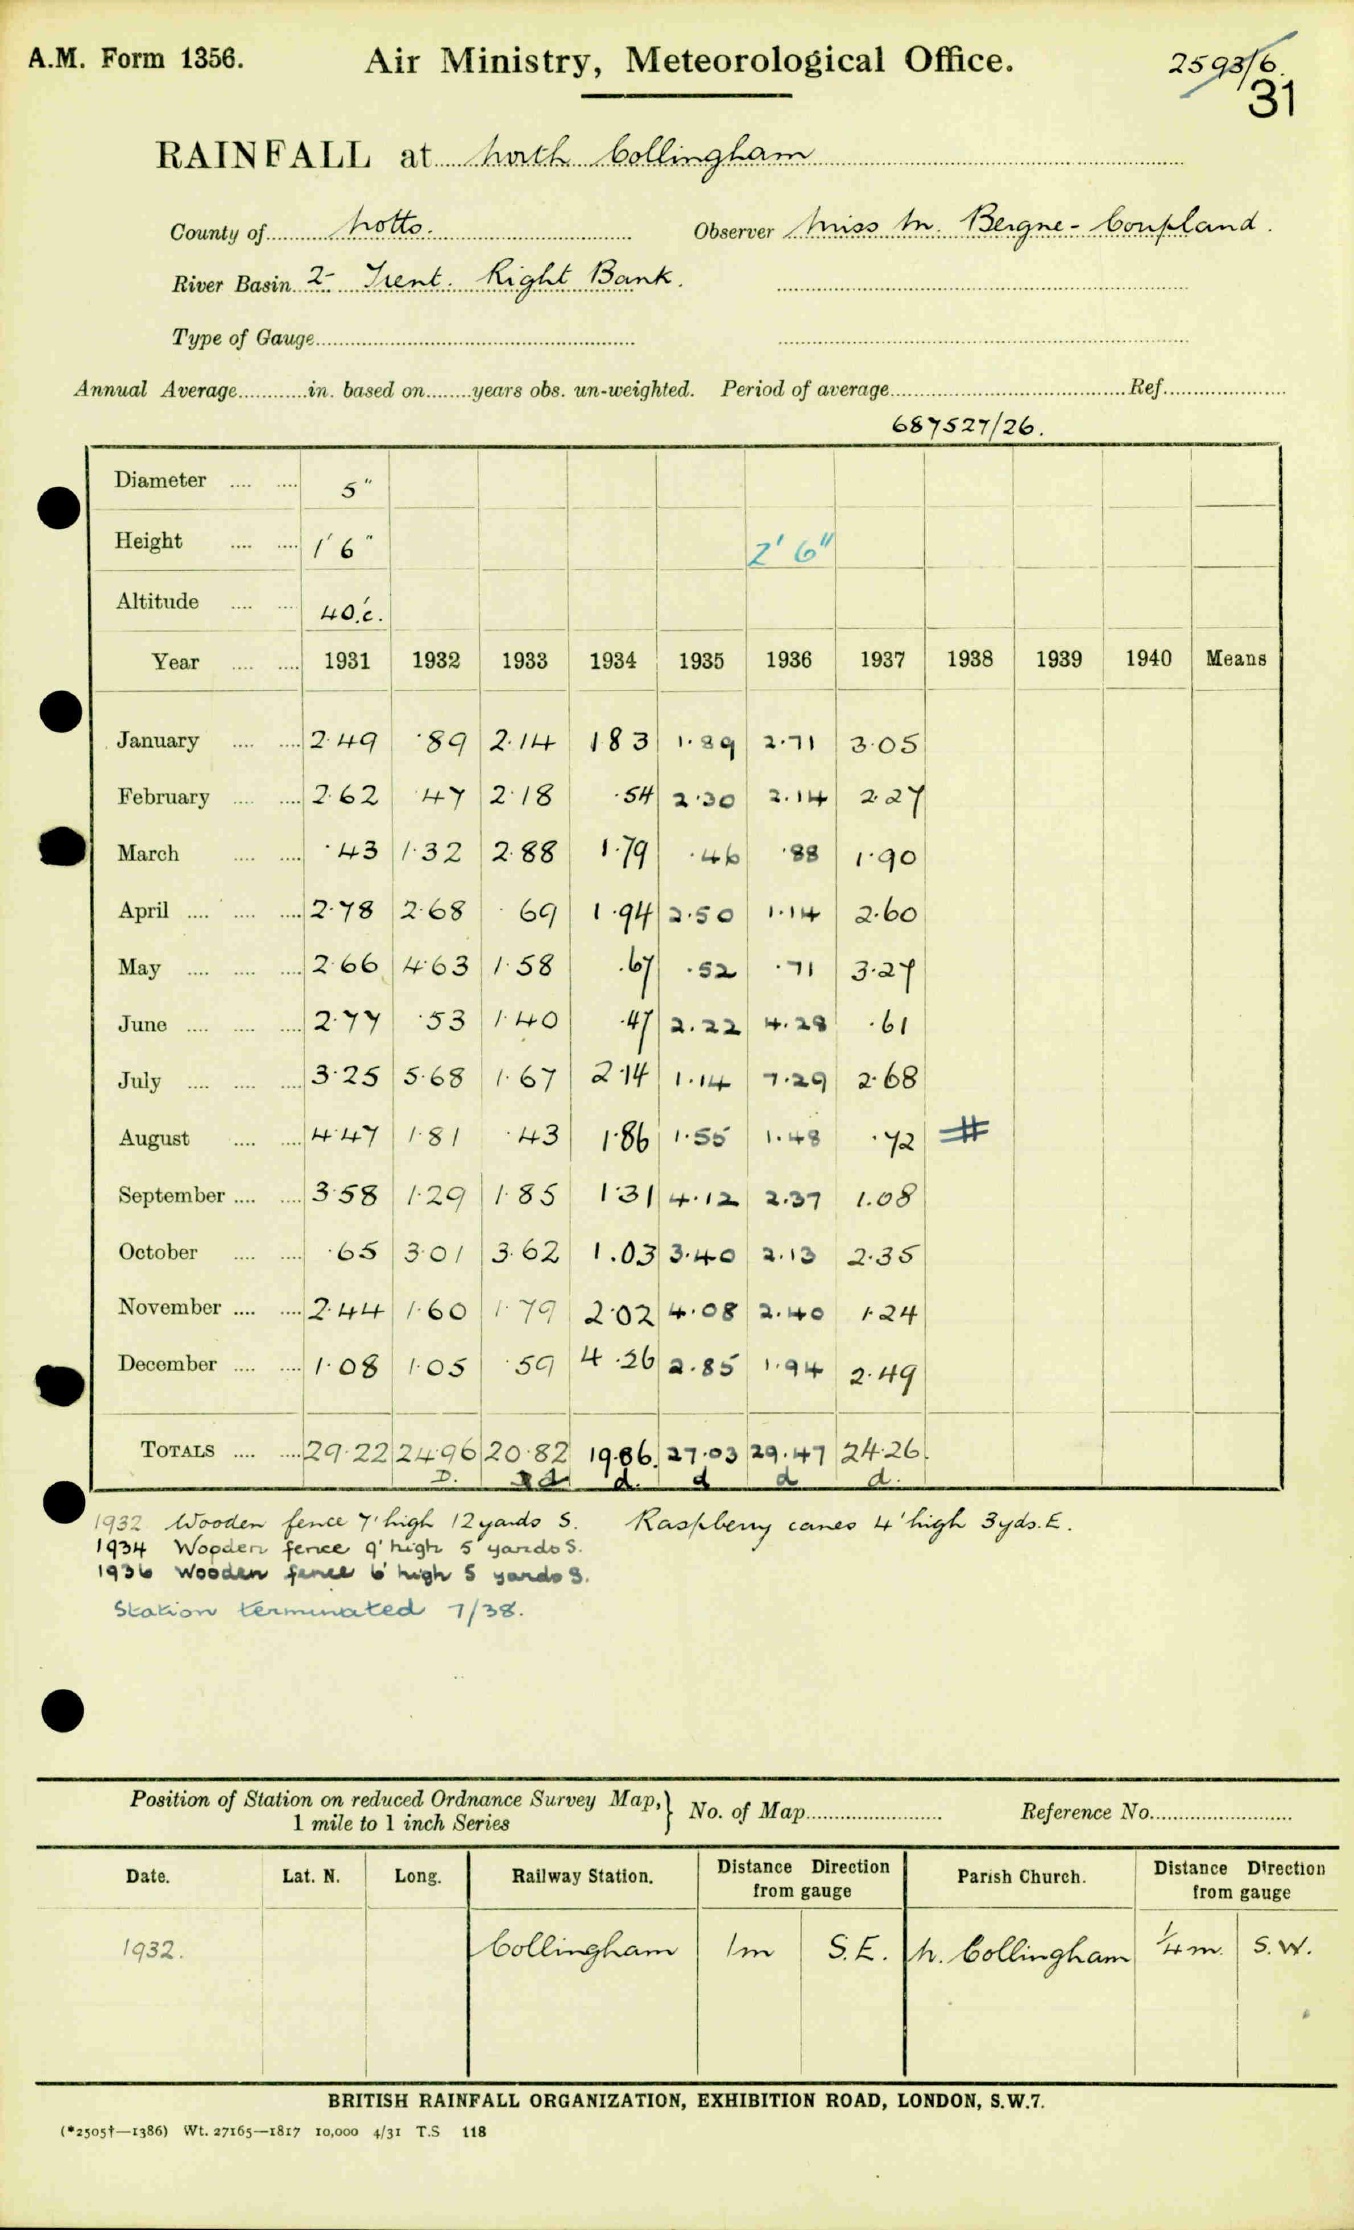 A.M. Form 1356. Air Ministry, Meteorological Office. 2593/6
31
RAINFALL at North Collingham
County of Notts. Observer Miss M. Bergne-Coupland.
River Basin 2- Trent. Right Bank.
Type of Gauge
Annual Average in. based on years obs. un-weighted. Period of average Ref.
687527/26.
Diameter 5"
Height 1' 6" 2' 6"
Altitude 40'c.
Year 1931 1932 1933 1934 1935 1936 1937 1938 1939 1940 Means
January 2.49 .89 2.14 1 83 1.89 2.71 3.05
February 2.62 .47 2.18 .54 2.30 2.14 2.27
March .43 1.32 2.88 1.79 .46 .88 1.90
April 2.78 2.68 .69 1.94 2.50 1.14 2.60
May 2.66 4.63 1.58 .67 .52 .71 3.27
June 2.77 .53 1.40 .47 2.22 4.28 .61
July 3.25 5.68 1.67 2.14 1.14 7.29 2.68
August 4.47 1.81 .43 1.86 1.55 1.48 .72 #
September 3.58 1.29 1.85 1.31 4.12 2.37 1.08
October .65 3.01 3.62 1.03 3.40 2.13 2.35
November 2.44 1.60 1.79 2.02 4.08 2.40 1.24
December 1.08 1.05 .59 4.26 2.85 1.94 2.49
TOTALS 29.22 24.96 20.82 19.86. 27.03 29.47 24.26.
D. d d. d d d.
1932 Wooden fence 7' high 12 yards S. Raspberry canes 4' high 3 yds. E.
1934 Wooden fence 9' high 5 yards S.
1936 Wooden fence 6' high 5 yards S.
Station terminated 7/38.
Position of Station on reduced Ordnance Survey Map, 1 mile to 1 inch Series } No. of Map Reference No.
Date. Lat. N. Long. Railway Station. Distance Direction from gauge Parish Church. Distance Direction from gauge
1932. Collingham 1m S.E. N. Collingham 1/4 m. S.W.
BRITISH RAINFALL ORGANIZATION, EXHIBITION ROAD, LONDON, S.W.7.
(*2505†—1386) Wt. 27165—1817 10,000 4/31 T.S 118